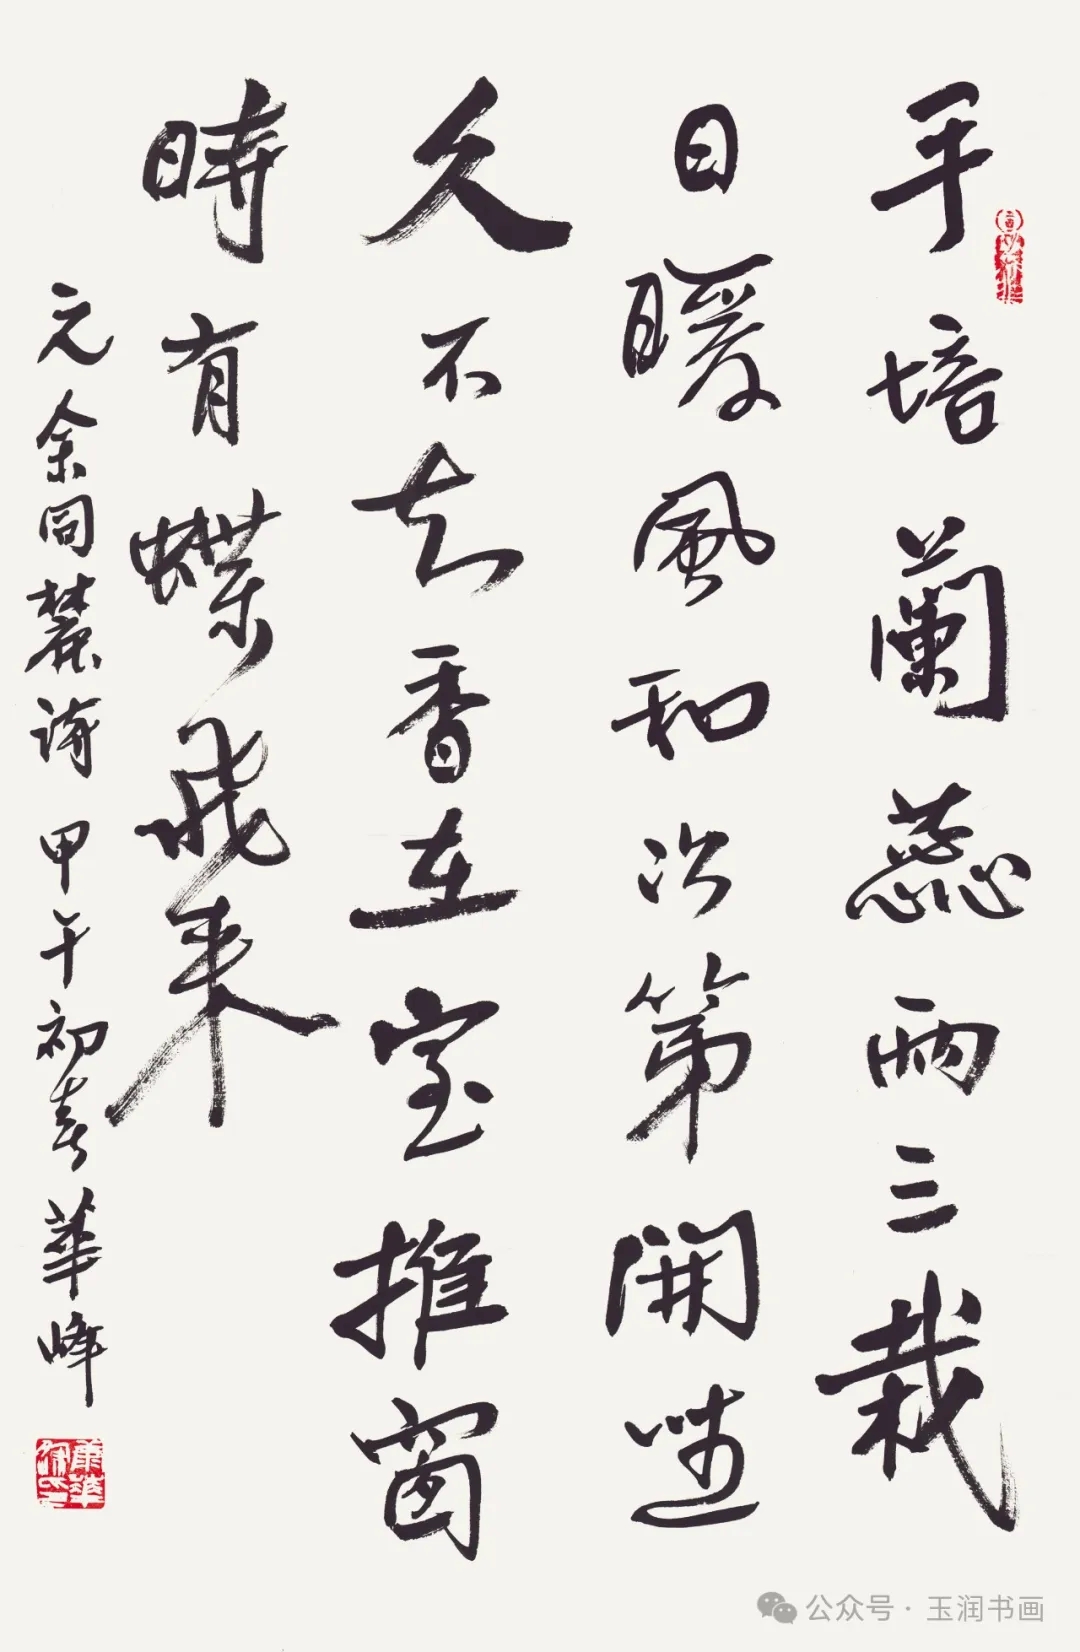 手培蘭蕊兩三栽
日暖風和次第開坐
久不知香在室推窗
時有蝶飛來
元余同麓詩甲午初春華峰
公众号·玉润书画